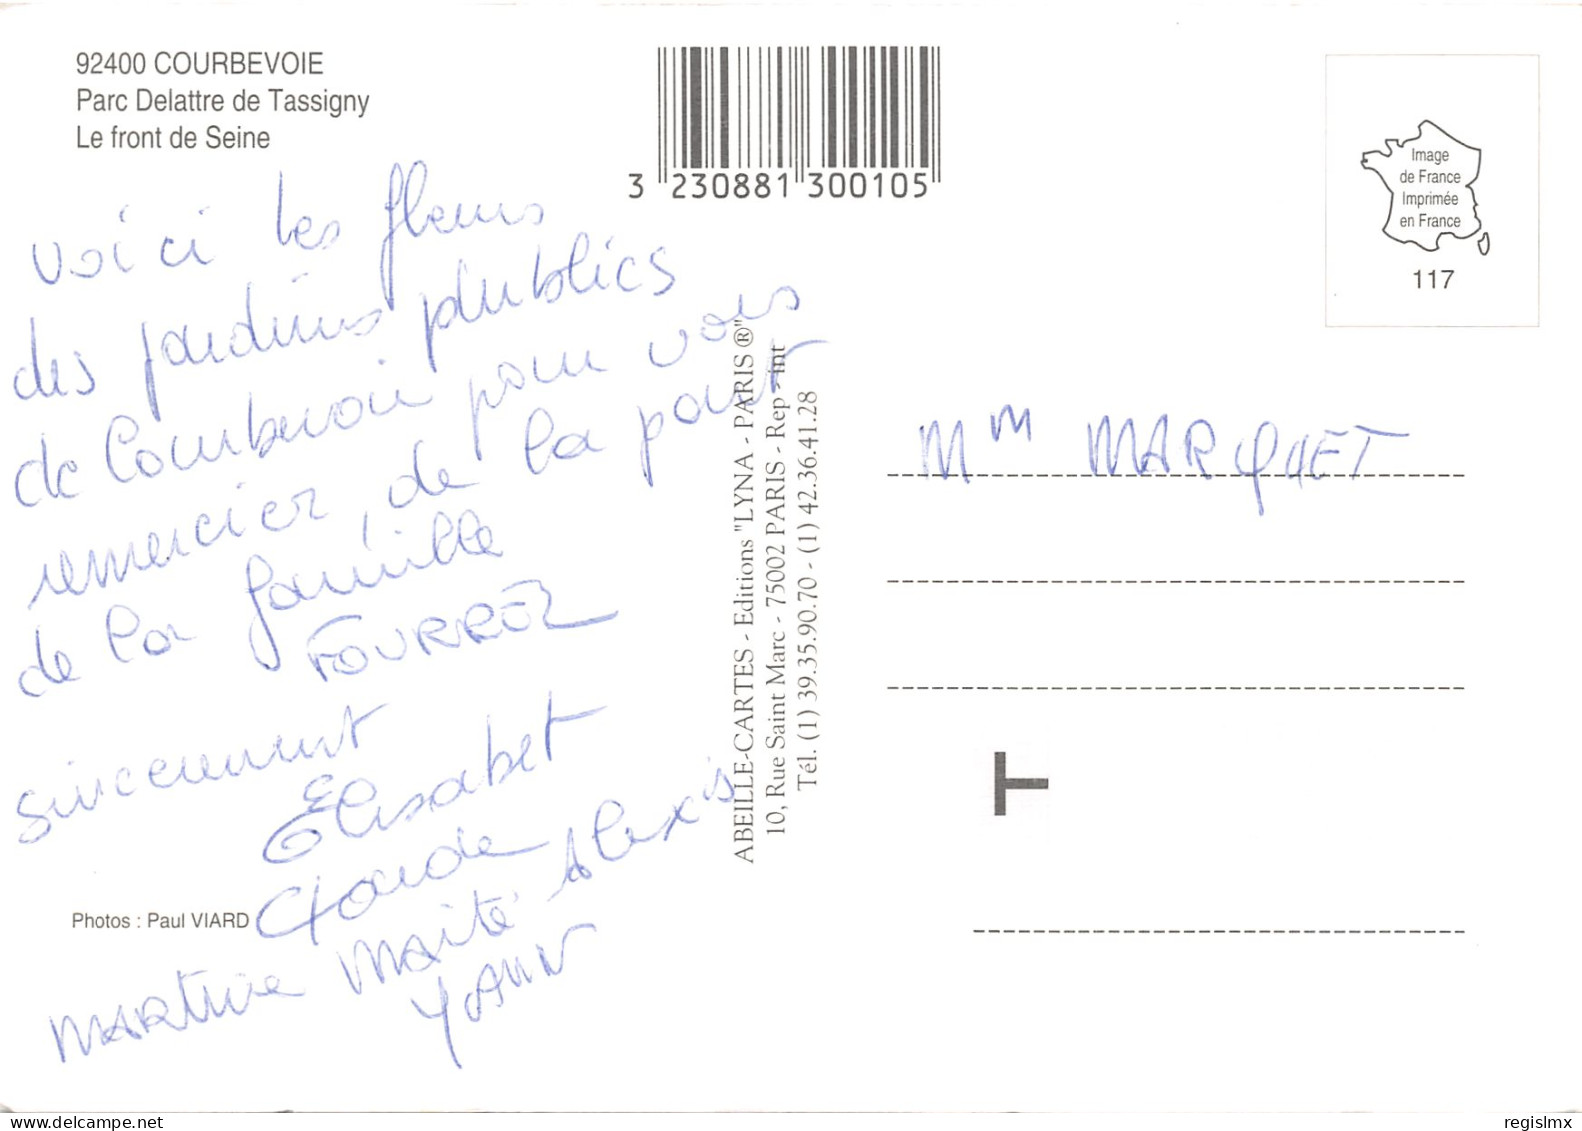 92400 COURBEVOIE
Parc Delattre de Tassigny
Le front de Seine
3 230881 300105
Image
de France
Imprimée
en France
117
voici les fleurs
des jardins publics
de Courbevoie pour vous
remercier, de la part
de la famille
FOURREZ
sincerement
Elisabet
Claude
Martine Maïté Alexis
YANN
Photos : Paul VIARD
ABEILLE-CARTES - Editions "LYNA - PARIS ®"
10, Rue Saint Marc - 75002 PARIS - Rep - int
Tél. (1) 39.35.90.70 - (1) 42.36.41.28
Mm MARQUET
T
regislmx